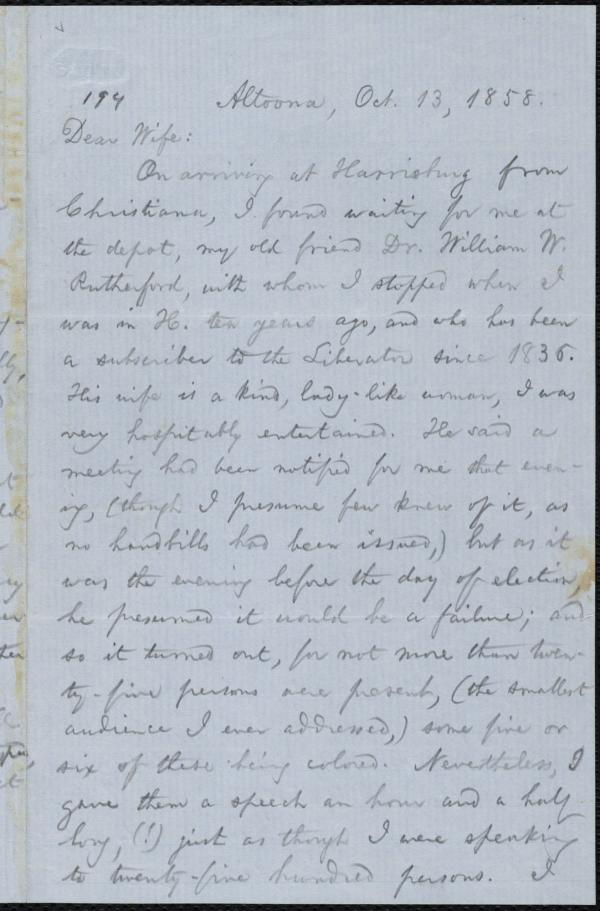 194
Altoona, Oct. 13, 1858.
Dear Wife:
On arriving at Harrisburg from
Christiana, I found waiting for me at
the depot, my old friend Dr. William W.
Rutherford, with whom I stopped when I
was in H. ten years ago, and who has been
a subscriber to the Liberator since 1836.
His wife is a kind, lady-like woman, I was
very hospitably entertained. He said a
meeting had been notified for me that even-
ing, (though I presume few knew of it, as
no handbills had been issued,) but as it
was the evening before the day of election,
he presumed it would be a failure; and
so it turned out, for not more than twen-
ty-five persons were present, (the smallest
audience I ever addressed,) some five or
six of these being colored. Nevertheless, I
gave them a speech an hour and a half
long, (!) just as though I were speaking
to twenty-five hundred persons. I